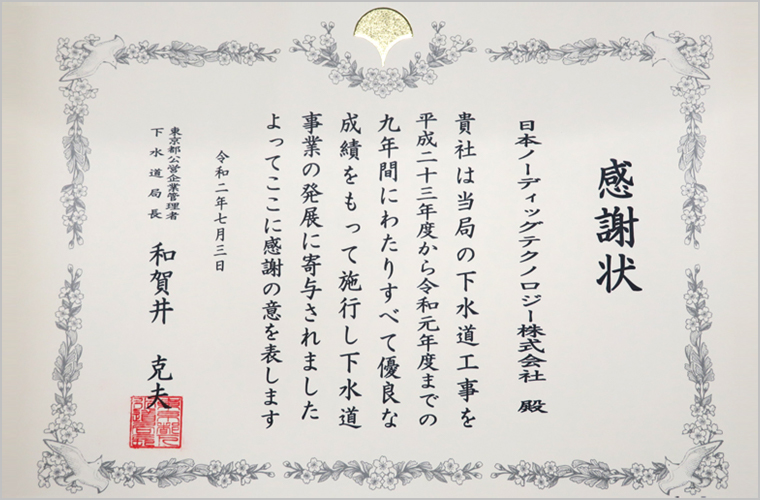 感謝状
日本ノーディッグテクノロジー株式会社 殿
貴社は当局の下水道工事を
平成二十三年度から令和元年度までの
九年間にわたりすべて優良な
成績をもって施行し下水道
事業の発展に寄与されました
よってここに感謝の意を表します
令和二年七月三日
東京都公営企業管理者
下水道局長
和賀井 克夫